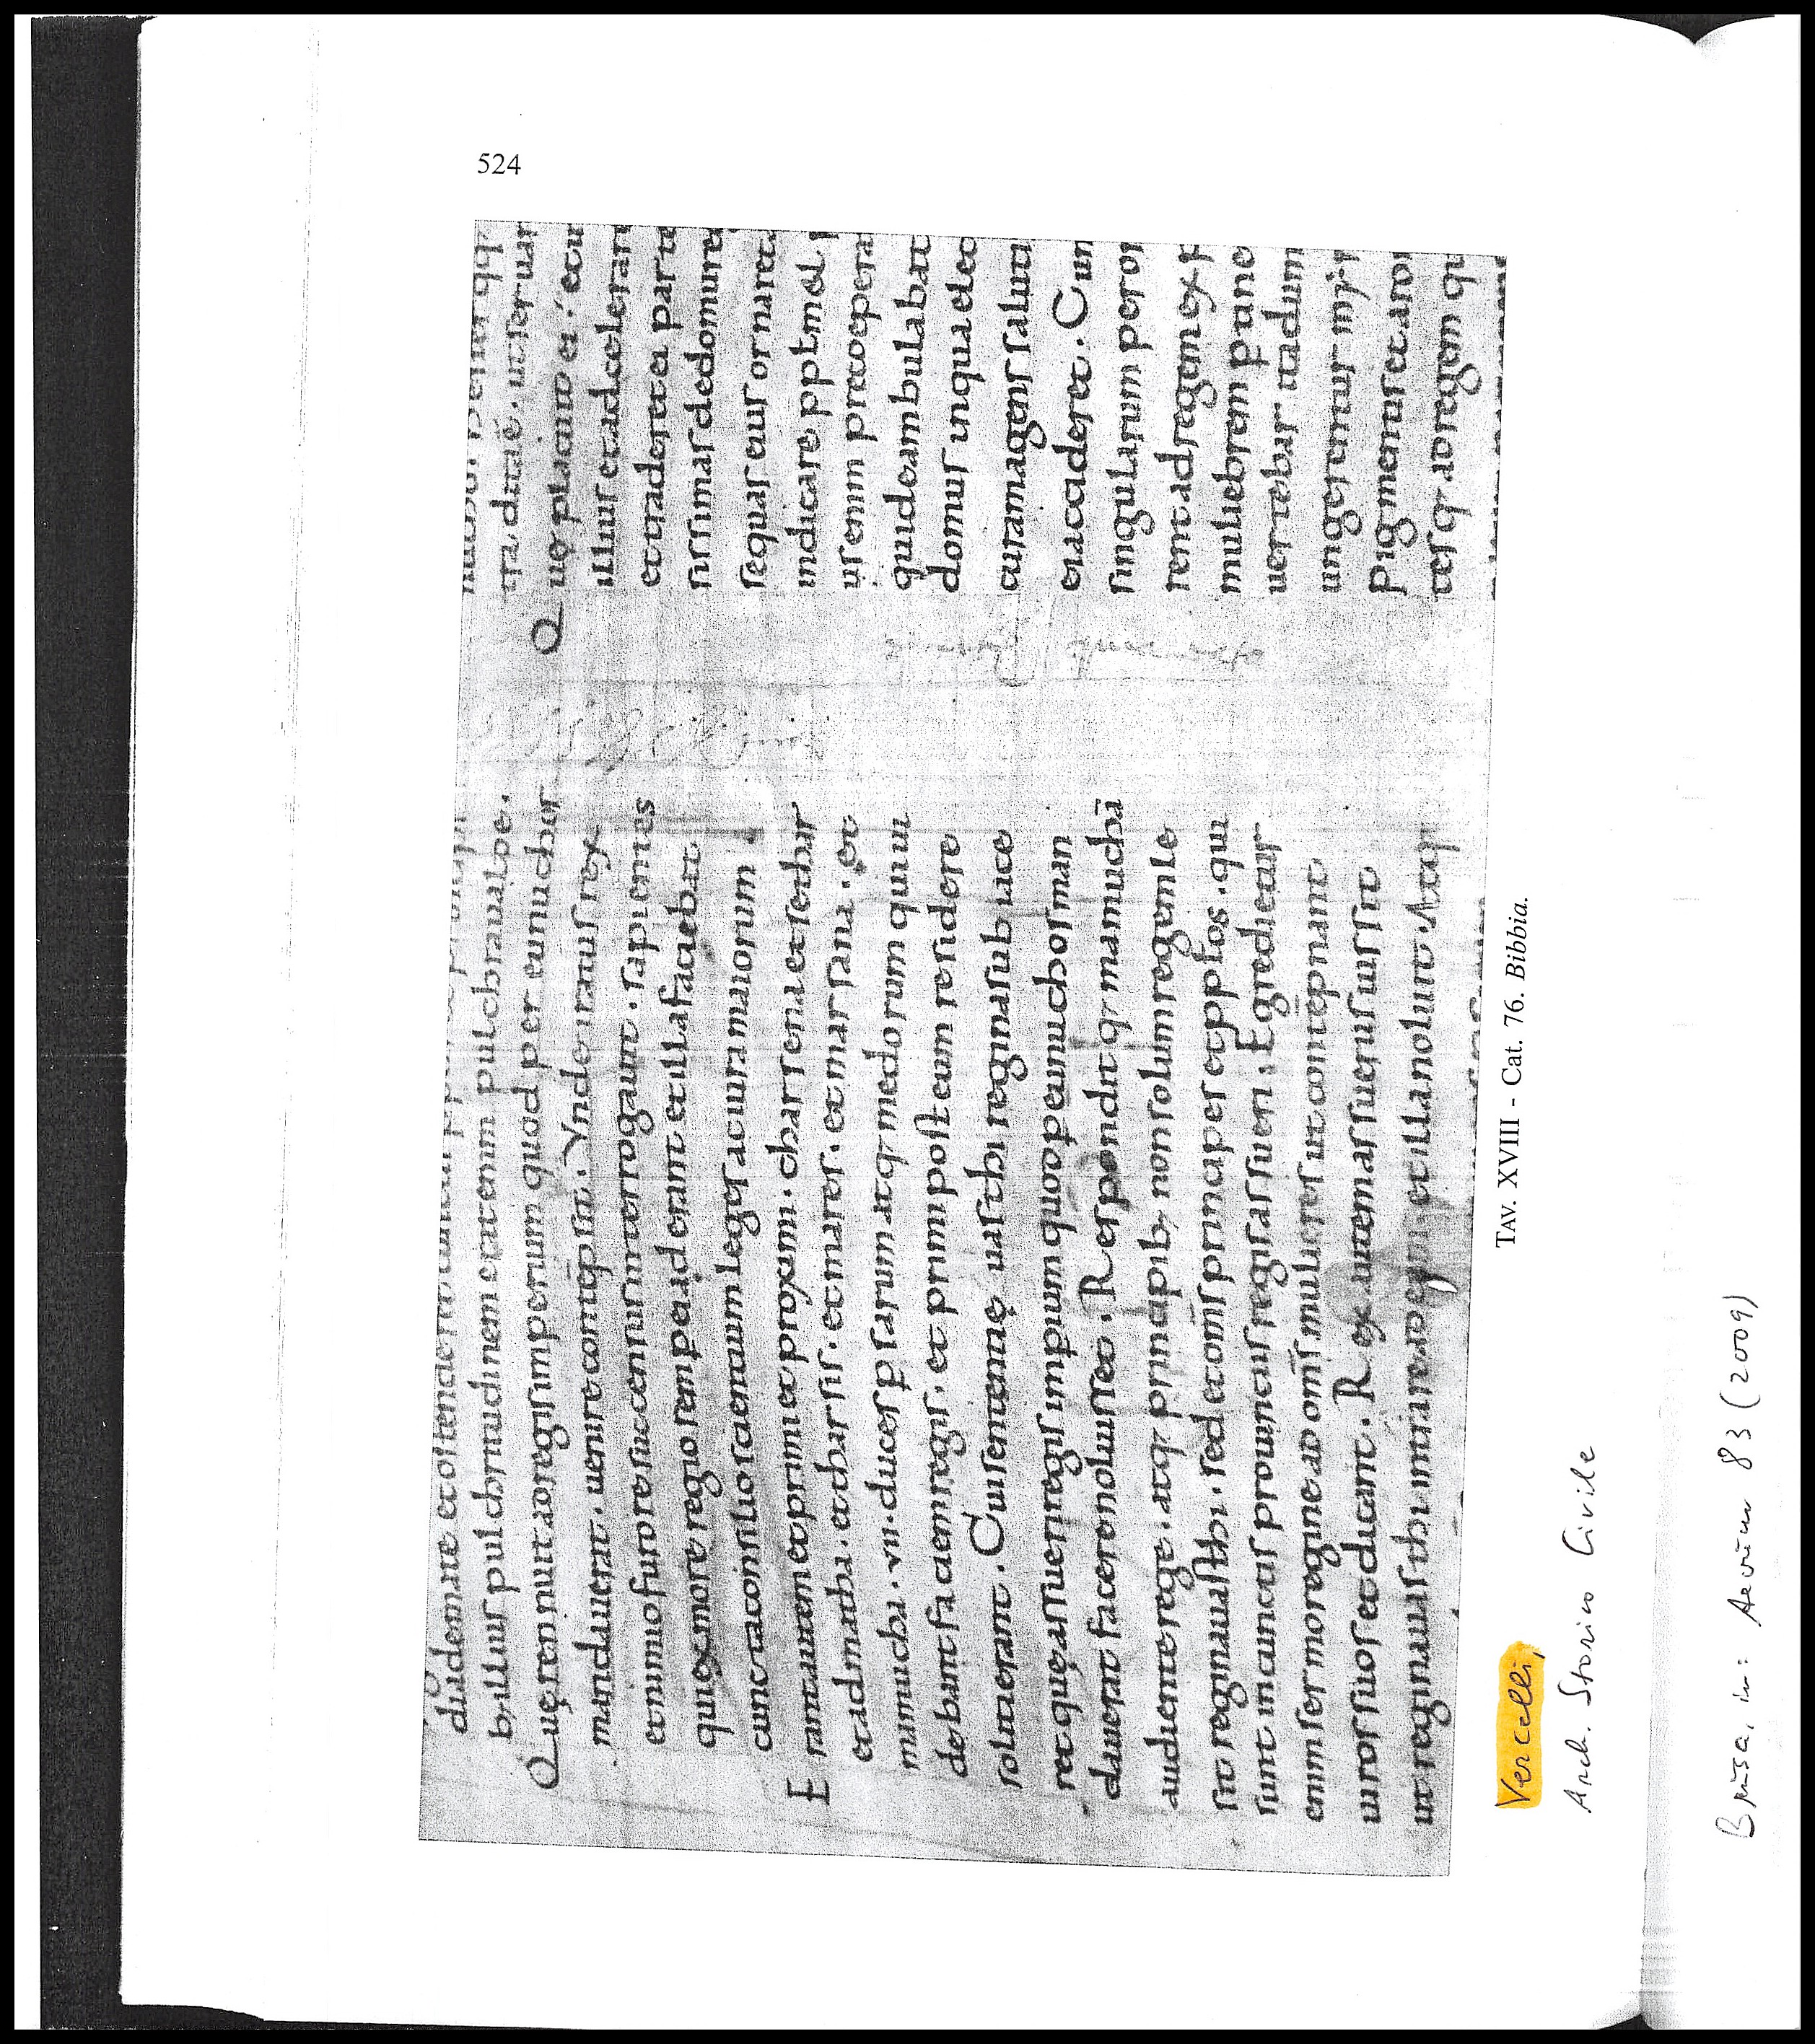 524
diademate et ostende
billius pulchritudinem erat enim pulchra ualde.
Quę rennuit ad regis imperium quod per eunuchos
mandauerat. uenire contēpsit. Vnde iratus rex
et nimio furore succensus interrogauit. sapientes
qui ex more regio semp ei aderant et illa faciebat
cuncta consilio scientium leges ac iura maiorum
Erant autem et primi et proximi. charsena et sethar
et admatha. et tharsis. et mares. et marsana. et
mamucha. vii. duces psarum atq; medorum qui ui
debant faciem regis. et primi post eum residere
soliti erant. Cui sententię uasthi regina subiace
ret quę assueri regis impium quod p eunuchos man
dauerat facere noluisset. Respondit q; mamuchā
audiente rege. atq; principib; non solum regem le
sit regina uasthi. sed et om̄s principes et pplos. qui
sunt in cunctis prouinciis regis assueri. Egredietur
enim sermo regine ad om̄s mulieres ut contēpnant
uiros suos et dicant. Rex
ut regina uasthi intraret ad eum et illa noluit. Atq;
Quę placuit ei.
illius et ad celerari
et traderet ei parte
sissimas de domu reg
sequas eius ornaret
indicare pptmel
us enim preceperat
qui deambulabat
domus in qua elec
curam agens saluti
ei accideret. Cum
singularum per or
rent ad regem ex p
muliebrem p unc
uertebar ita dum
ungerentur mir
pigmentis et aro
tesq; ad regem qu
TAV. XVIII - Cat. 76. Bibbia.
Vercelli,
Arch. Storico Civile
Brusa, in: Aevum 83 (2009)